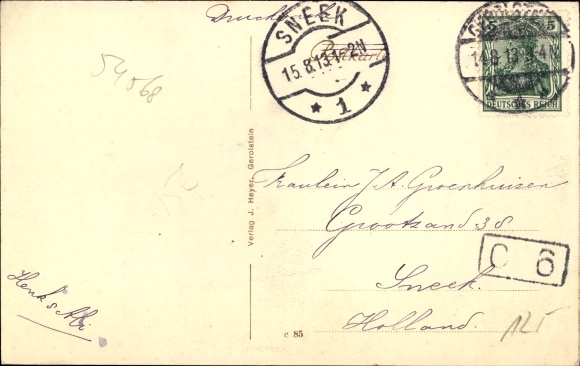 SNEEK
15.8.13.1-2N
* 1 *
Postkarte
14.8.13.3-4N
5
DEUTSCHES REICH
54568
Verlag J. Heyer, Gerolstein
Fräulein J.A. Groenhuizen
Grootzand 38
C 6
Sneek.
Holland.
e 85